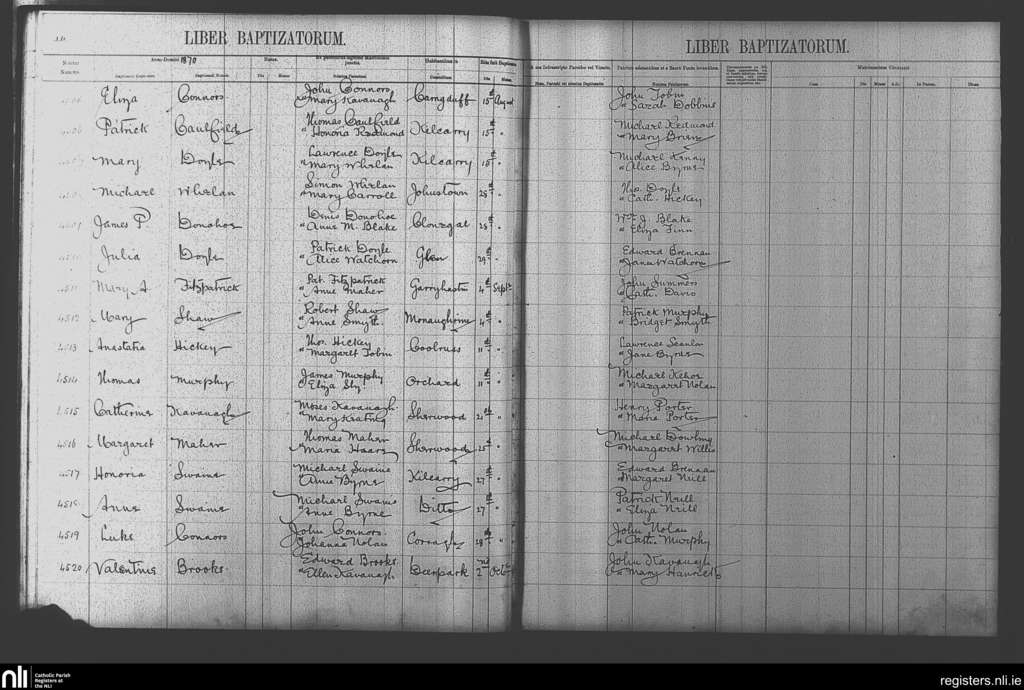 LIBER BAPTIZATORUM.
LIBER BAPTIZATORUM.
Anno Domini 1870
Eliza Connors John Connors Mary Kavanagh Carngduff 15th August John Tobin " Sarah Dobbins
Patrick Caulfield Thomas Caulfield " Honoria Redmond Kilcarry 15th " Michael Redmond " Mary Brien
Mary Doyle Lawrence Doyle " Mary Whelan Kilcarry 15th " Michael Kenny " Alice Byrne
Michael Whelan Simon Whelan " Mary Carroll Johnstown 28th " Thos. Doyle " Cath. Hickey
James P. Donohoe Denis Donohoe " Anne M. Blake Clonegal 28th " Wm. J. Blake " Eliza Finn
Julia Doyle Patrick Doyle " Alice Watchorn Glen 29th " Edward Brennan " Jane Watchorn
Mary A Fitzpatrick Pat. Fitzpatrick " Anne Maher Garryhasten 4th Septr John Summers " Cath. Davis
4512 Mary Shaw Robert Shaw " Anne Smyth Monaughrim 4th " Patrick Murphy " Bridget Smyth
4513 Anastatia Hickey Thos. Hickey " Margaret Tobin Coolruss 11th " Lawrence Scanlon " Jane Byrne
4514 Thomas Murphy James Murphy " Eliza Shy Orchard 11th " Michael Kehoe " Margaret Nolan
4515 Catherine Kavanagh Moses Kavanagh " Mary Keating Sherwood 21st " Henry Porter " Maria Porter
4516 Margaret Maher Thomas Maher " Maria Hoare Sherwood 25th " Michael Dowling " Margaret Willis
4517 Honoria Swaine Michael Swaine " Anne Byrne Kilcarry 27th " Edward Brennan " Margaret Neill
4518 Anne Swaine Michael Swaine " Anne Byrne Ditto 27th " Patrick Neill " Eliza Neill
4519 Luke Connors John Connors Johanna Nolan Corragh 28th " John Nolan " Cath. Murphy
4520 Valentine Brooks Edward Brooks " Ellen Kavanagh Deerpark 2nd Octr John Kavanagh " Mary
nli Catholic Parish Registers at the NLI
registers.nli.ie